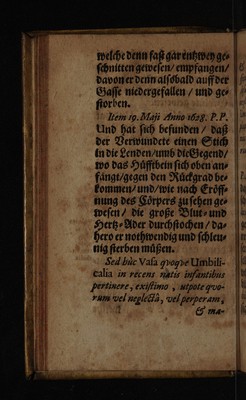 welche denn fast gar entzwey ge-
schnitten gewesen/ empfangen/
davon er denn alsobald auff der
Gasse niedergefallen / und ge-
storben.
Item 19. Maji Anno 1628. P.P.
Und hat sich befunden / daß
der Verwundete einen Stich
in die Lenden/umb die Gegend/
wo das Hüffbein sich oben an-
fängt/gegen den Rückgrad be-
kommen/ und/ wie nach Eröff-
nung des Cörpers zu sehen ge-
wesen/ die große Blut- und
Hertz-Ader durchstochen / da-
hero er nothwendig und schleu-
nig sterben müßen.
Sed hûc Vasa qvoqve Umbili-
calia in recens natis infantibus
pertinere, existimo, utpote qvo-
rum vel neglectâ, vel perperam,
& ma-